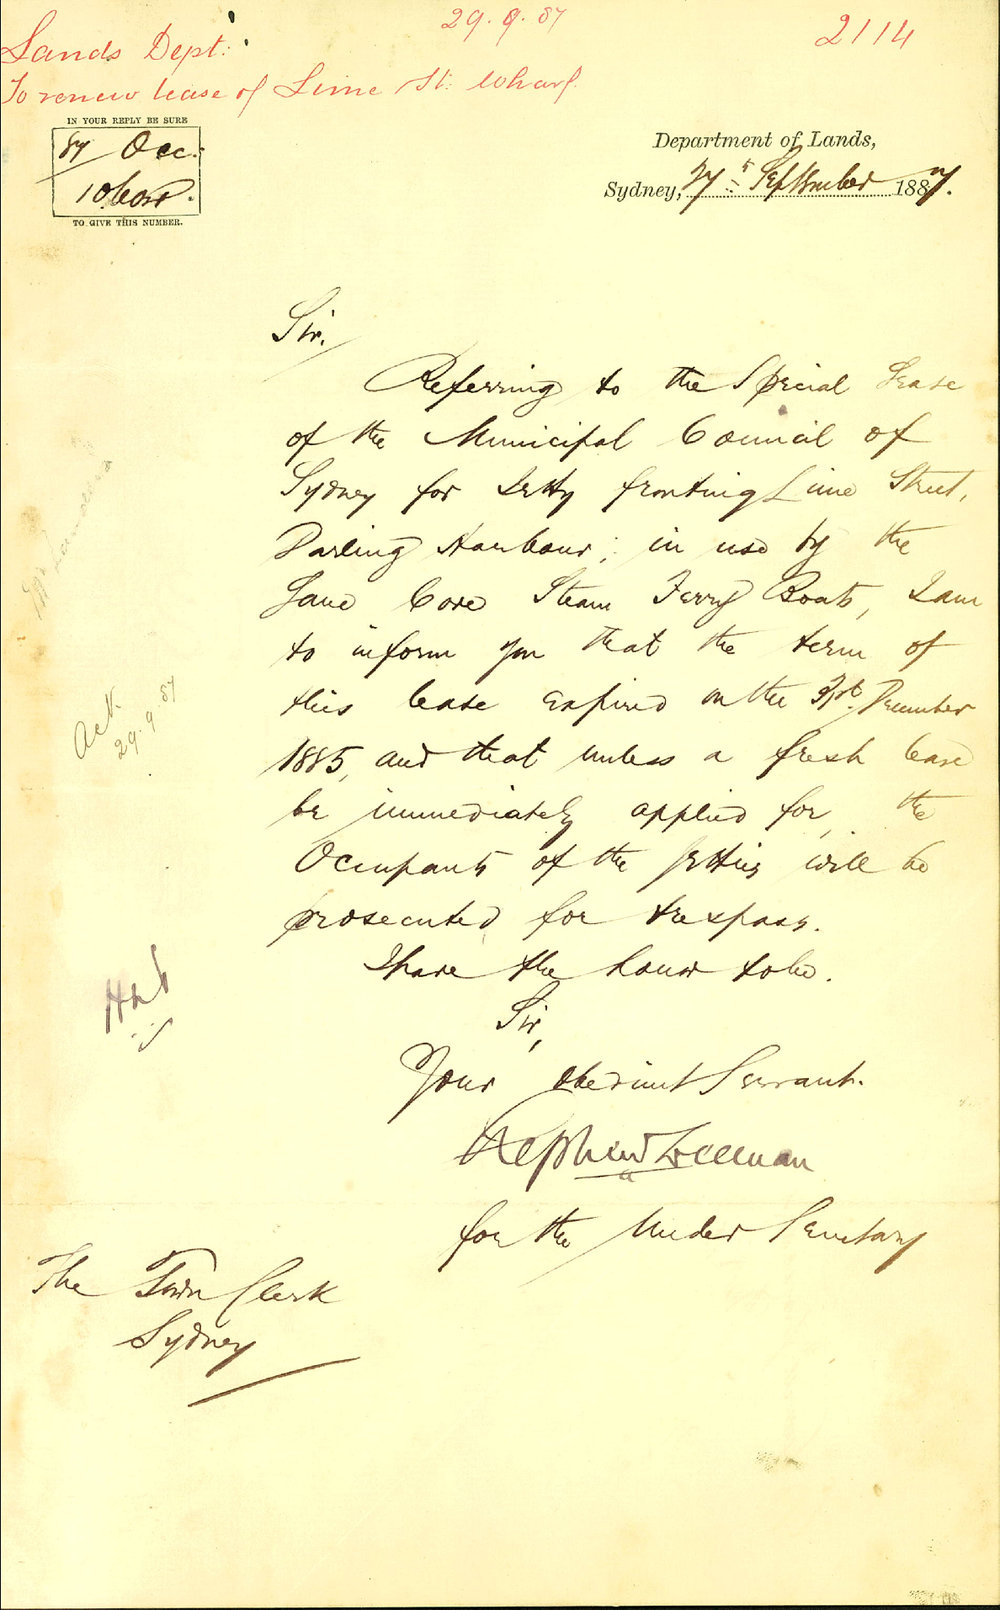 29.9.87
2114
Lands Dept:
To renew lease of Lime St: Wharf.
IN YOUR REPLY BE SURE
87 Occ:
TO GIVE THIS NUMBER.
Department of Lands,
Sydney, 27th September 1887.
Sir,
Referring to the Special Lease
of the Municipal Council of
Sydney for Jetty fronting Lime Street,
Darling Harbour; in use by the
Lane Cove Steam Ferry Boats, I am
to inform you that the term of
this lease expired on the 31st December
1885, and that unless a fresh lease
be immediately applied for, the
Occupants of the Jetties will be
prosecuted for trespass.
I have the honor to be.
Sir,
Your obedient Servant.
Stephen Freeman
for the Under Secretary
Ack
29.9.87
The Town Clerk
Sydney